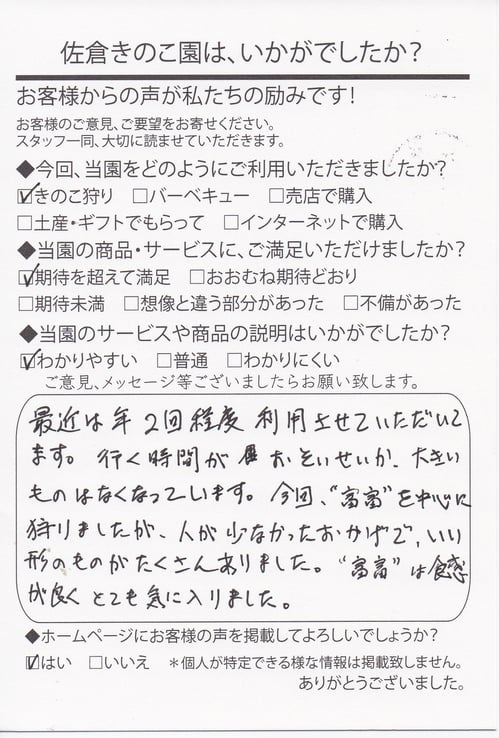 佐倉きのこ園は、いかがでしたか?
お客様からの声が私たちの励みです!
お客様のご意見、ご要望をお寄せください。
スタッフ一同、大切に読ませていただきます。
◆今回、当園をどのようにご利用いただきましたか?
☑きのこ狩り □バーベキュー □売店で購入
□土産・ギフトでもらって □インターネットで購入
◆当園の商品・サービスに、ご満足いただけましたか?
☑期待を超えて満足 □おおむね期待どおり
□期待未満 □想像と違う部分があった □不備があった
◆当園のサービスや商品の説明はいかがでしたか?
☑わかりやすい □普通 □わかりにくい
ご意見、メッセージ等ございましたらお願い致します。
最近は年2回程度利用させていただいて
ます。行く時間が おそいせいか、大きい
ものはなくなっています。今回、"高富"を中心に
狩りましたが、人が少なかったおかげで、いい
形のものがたくさんありました。"高富"は食感
が良くとても気に入りました。
◆ホームページにお客様の声を掲載してよろしいでしょうか?
☑はい □いいえ *個人が特定できる様な情報は掲載致しません。
ありがとうございました。